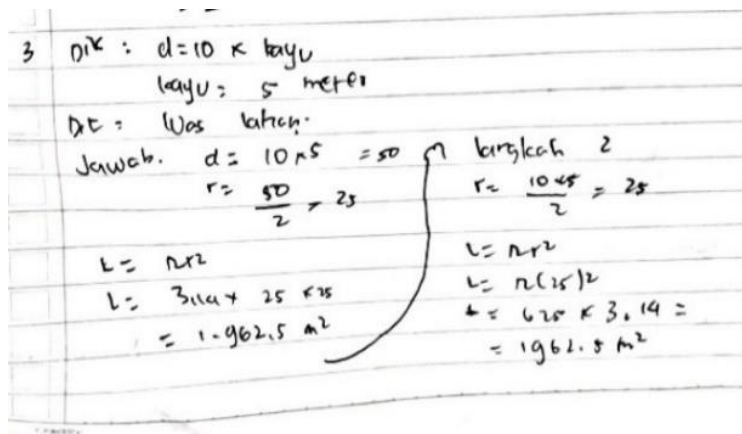 3 Dik : d = 10 x kayu
kayu = 5 meter
Dit : luas lahan.
Jawab. d = 10 x 5 = 50
r = 50/2 = 25
L = πr2
L = 3,14 x 25 x 25
= 1.962,5 m2
langkah 2
r = 10 x 5/2 = 25
L = πr2
L = π(25)2
L = 625 x 3.14 =
= 1962.5 m2